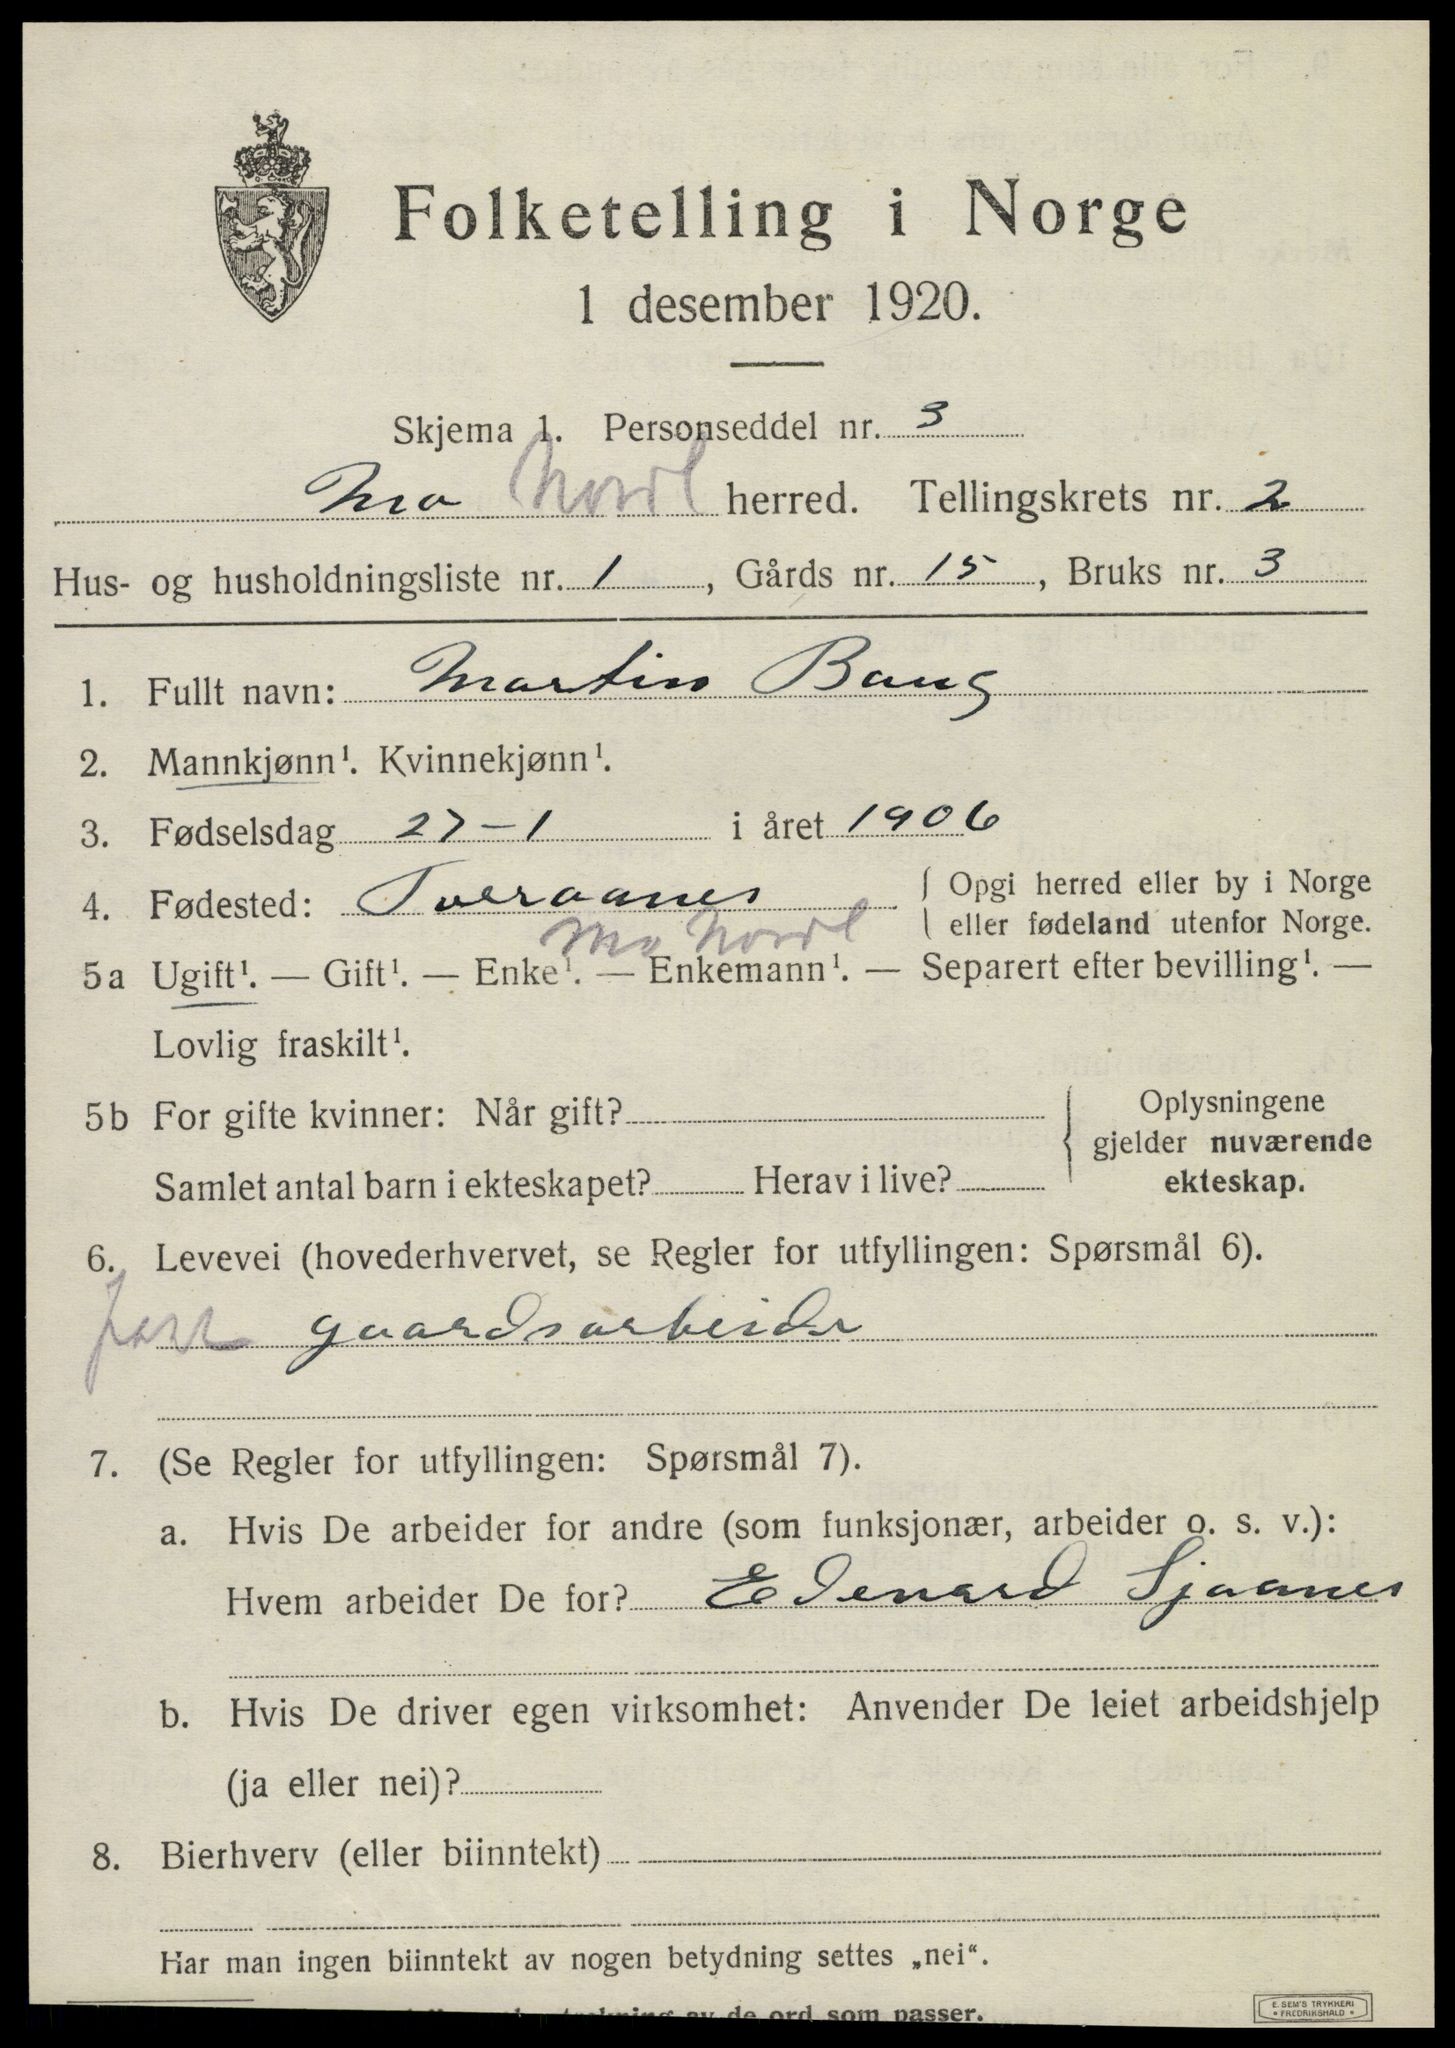 Folketelling i Norge
1 desember 1920.
Skjema 1. Personseddel nr. 3
Mo Nordl herred. Tellingskrets nr. 2
Hus- og husholdningsliste nr. 1, Gårds nr. 15, Bruks nr. 3
1. Fullt navn: Martin Bang
2. Mannkjønn¹. Kvinnekjønn¹.
3. Fødselsdag 27-1 i året 1906
4. Fødested: Tveraanes { Opgi herred eller by i Norge
eller fødeland utenfor Norge.
Mo Nordl
5a Ugift¹. — Gift¹. — Enke¹. — Enkemann¹. — Separert efter bevilling¹. —
Lovlig fraskilt¹.
5b For gifte kvinner: Når gift?
Samlet antal barn i ekteskapet? Herav i live?
{ Oplysningene
gjelder nuværende
ekteskap.
6. Levevei (hovederhvervet, se Regler for utfyllingen: Spørsmål 6).
gaardsarbeider
7. (Se Regler for utfyllingen: Spørsmål 7).
a. Hvis De arbeider for andre (som funksjonær, arbeider o. s. v.):
Hvem arbeider De for? Edevard Sjaanes
b. Hvis De driver egen virksomhet: Anvender De leiet arbeidshjelp
(ja eller nei)?
8. Bierhverv (eller biinntekt)
Har man ingen biinntekt av nogen betydning settes „nei“.
av de ord som passer.
E. SEM'S TRYKKERI
• FREDRIKSHALD •